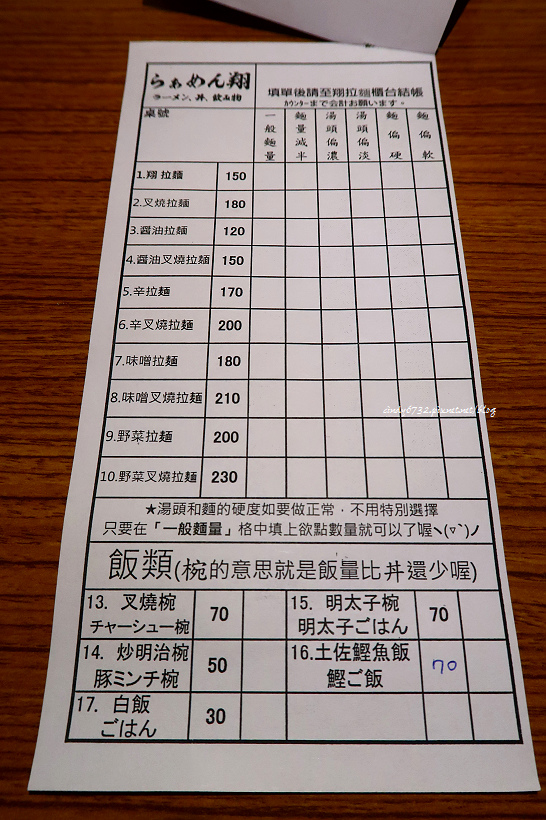 らぁめん翔
ラーメン、丼、飲み物
填單後請至翔拉麵櫃台結帳
カウンターまで会計お願います。
桌號
一般麵量
麵量減半
湯頭偏濃
湯頭偏淡
麵偏硬
麵偏軟
1.翔 拉麵 150
2.叉燒拉麵 180
3.醬油拉麵 120
4.醬油叉燒拉麵 150
5.辛拉麵 170
6.辛叉燒拉麵 200
7.味噌拉麵 180
8.味噌叉燒拉麵 210
9.野菜拉麵 200
10.野菜叉燒拉麵 230
★湯頭和麵的硬度如要做正常，不用特別選擇
只要在「一般麵量」格中填上欲點數量就可以了喔ヽ(▽`)ノ
飯類(椀的意思就是飯量比丼還少喔)
13. 叉燒椀 70
チャーシュー椀
15. 明太子椀 70
明太子ごはん
14. 炒明治椀 50
豚ミンチ椀
16.土佐鰹魚飯 70
鰹ご飯
17. 白飯 30
ごはん